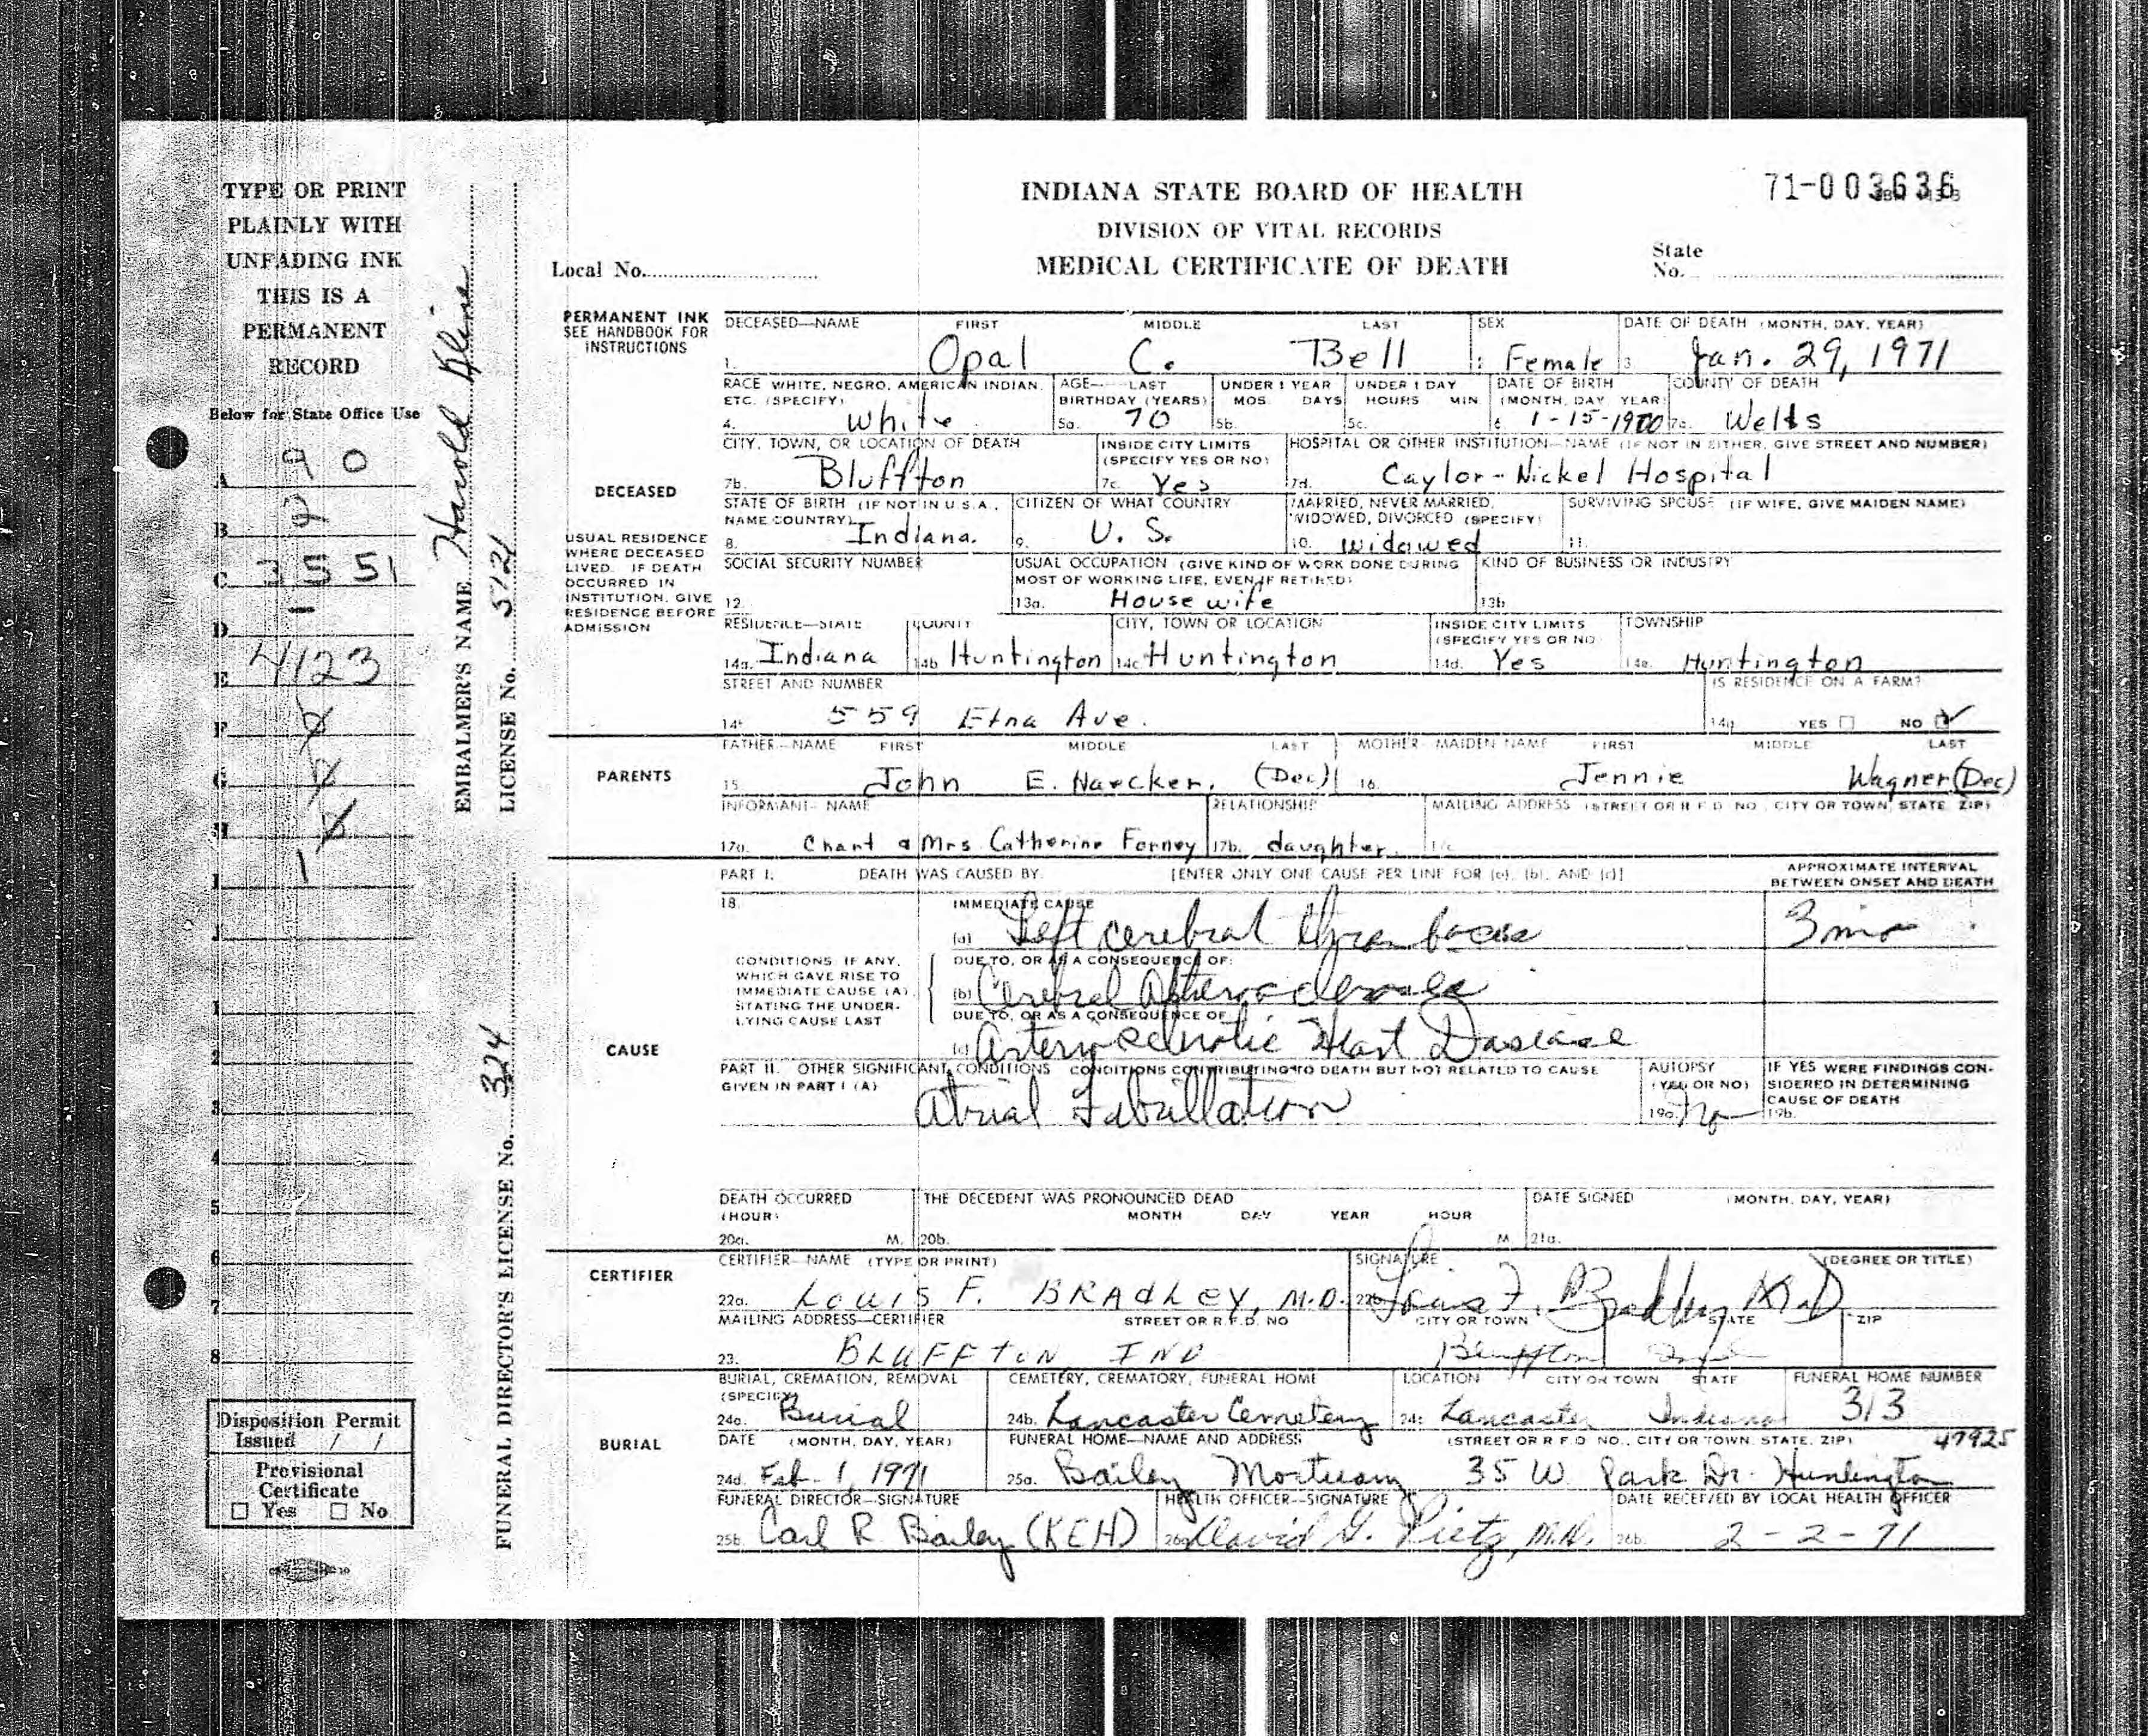 TYPE OR PRINT
PLAINLY WITH
UNFADING INK
THIS IS A
PERMANENT
RECORD
Below for State Office Use
A 9 0
B 2
C 3 5 5 1
D -
E 4123
F
G
H
I 1
1
2
3
4
5
6
7
8
Disposition Permit
Issued / /
Provisional
Certificate
☐ Yes ☐ No
EMBALMER'S NAME Harold Kline
LICENSE No. 5121
FUNERAL DIRECTOR'S LICENSE No. 324
INDIANA STATE BOARD OF HEALTH
DIVISION OF VITAL RECORDS
MEDICAL CERTIFICATE OF DEATH
71-003636
Local No.
State
No.
PERMANENT INK
SEE HANDBOOK FOR
INSTRUCTIONS
DECEASED—NAME FIRST MIDDLE LAST SEX DATE OF DEATH (MONTH, DAY, YEAR)
1. Opal C. Bell Female 3. Jan. 29, 1971
RACE WHITE, NEGRO, AMERICAN INDIAN, AGE—LAST UNDER 1 YEAR UNDER 1 DAY DATE OF BIRTH COUNTY OF DEATH
ETC. (SPECIFY) BIRTHDAY (YEARS) MOS. DAYS HOURS MIN. (MONTH, DAY, YEAR)
4. White 5a. 70 5b. 5c. 6. 1-15-1900 7a. Wells
CITY, TOWN, OR LOCATION OF DEATH INSIDE CITY LIMITS HOSPITAL OR OTHER INSTITUTION—NAME (IF NOT IN EITHER, GIVE STREET AND NUMBER)
(SPECIFY YES OR NO)
DECEASED
7b. Bluffton 7c. Yes 7d. Caylor-Nickel Hospital
STATE OF BIRTH (IF NOT IN U.S.A., CITIZEN OF WHAT COUNTRY MARRIED, NEVER MARRIED, SURVIVING SPOUSE (IF WIFE, GIVE MAIDEN NAME)
NAME COUNTRY) WIDOWED, DIVORCED (SPECIFY)
8. Indiana. 9. U. S. 10. Widowed 11.
USUAL RESIDENCE
WHERE DECEASED
LIVED. IF DEATH
OCCURRED IN
INSTITUTION, GIVE
RESIDENCE BEFORE
ADMISSION
SOCIAL SECURITY NUMBER USUAL OCCUPATION (GIVE KIND OF WORK DONE DURING KIND OF BUSINESS OR INDUSTRY
MOST OF WORKING LIFE, EVEN IF RETIRED)
12. 13a. Housewife 13b.
RESIDENCE—STATE COUNTY CITY, TOWN OR LOCATION INSIDE CITY LIMITS TOWNSHIP
(SPECIFY YES OR NO)
14a. Indiana 14b. Huntington 14c. Huntington 14d. Yes 14e. Huntington
STREET AND NUMBER IS RESIDENCE ON A FARM?
14f. 559 Etna Ave. 14g. YES ☐ NO ☑
PARENTS
FATHER—NAME FIRST MIDDLE LAST MOTHER—MAIDEN NAME FIRST MIDDLE LAST
15. John E. Naecker. (Dec) 16. Jennie Wagner (Dec)
INFORMANT—NAME RELATIONSHIP MAILING ADDRESS (STREET OR R.F.D. NO., CITY OR TOWN, STATE, ZIP)
17a. Chart & Mrs Catherine Forney 17b. daughter. 17c.
PART I. DEATH WAS CAUSED BY: [ENTER ONLY ONE CAUSE PER LINE FOR (a), (b), AND (c)] APPROXIMATE INTERVAL
BETWEEN ONSET AND DEATH
18. IMMEDIATE CAUSE
(a) Left cerebral thrombosis 3 mo
CONDITIONS, IF ANY,
WHICH GAVE RISE TO
IMMEDIATE CAUSE (A),
STATING THE UNDER-
LYING CAUSE LAST
DUE TO, OR AS A CONSEQUENCE OF:
(b) Cerebral Atherosclerosis
DUE TO, OR AS A CONSEQUENCE OF
(c) Arteriosclerotic Heart Disease
CAUSE
PART II. OTHER SIGNIFICANT CONDITIONS CONDITIONS CONTRIBUTING TO DEATH BUT NOT RELATED TO CAUSE
GIVEN IN PART I (A)
Atrial Fibrillation
AUTOPSY
(YES OR NO)
19a. No
IF YES WERE FINDINGS CON-
SIDERED IN DETERMINING
CAUSE OF DEATH
19b.
DEATH OCCURRED THE DECEDENT WAS PRONOUNCED DEAD DATE SIGNED (MONTH, DAY, YEAR)
(HOUR) MONTH DAY YEAR HOUR
20a. M. 20b. M. 21a.
CERTIFIER
CERTIFIER—NAME (TYPE OR PRINT) SIGNATURE (DEGREE OR TITLE)
22a. Louis F. BRADLEY, M.D. 22b. Louis F. Bradley M.D.
MAILING ADDRESS—CERTIFIER STREET OR R.F.D. NO CITY OR TOWN STATE ZIP
23. BLUFFTON IND Bluffton
BURIAL
BURIAL, CREMATION, REMOVAL CEMETERY, CREMATORY, FUNERAL HOME LOCATION CITY OR TOWN STATE FUNERAL HOME NUMBER
(SPECIFY)
24a. Burial 24b. Lancaster Cemetery 24c. Lancaster Indiana 313
DATE (MONTH, DAY, YEAR) FUNERAL HOME—NAME AND ADDRESS (STREET OR R.F.D. NO., CITY OR TOWN, STATE, ZIP) 47925
24d. Feb. 1, 1971 25a. Bailey Mortuary 35 W. Park Dr. Huntington
FUNERAL DIRECTOR—SIGNATURE HEALTH OFFICER—SIGNATURE DATE RECEIVED BY LOCAL HEALTH OFFICER
25b. Carl R Bailey (KEH) 26a. David G. Pietz, M.D. 26b. 2-2-71